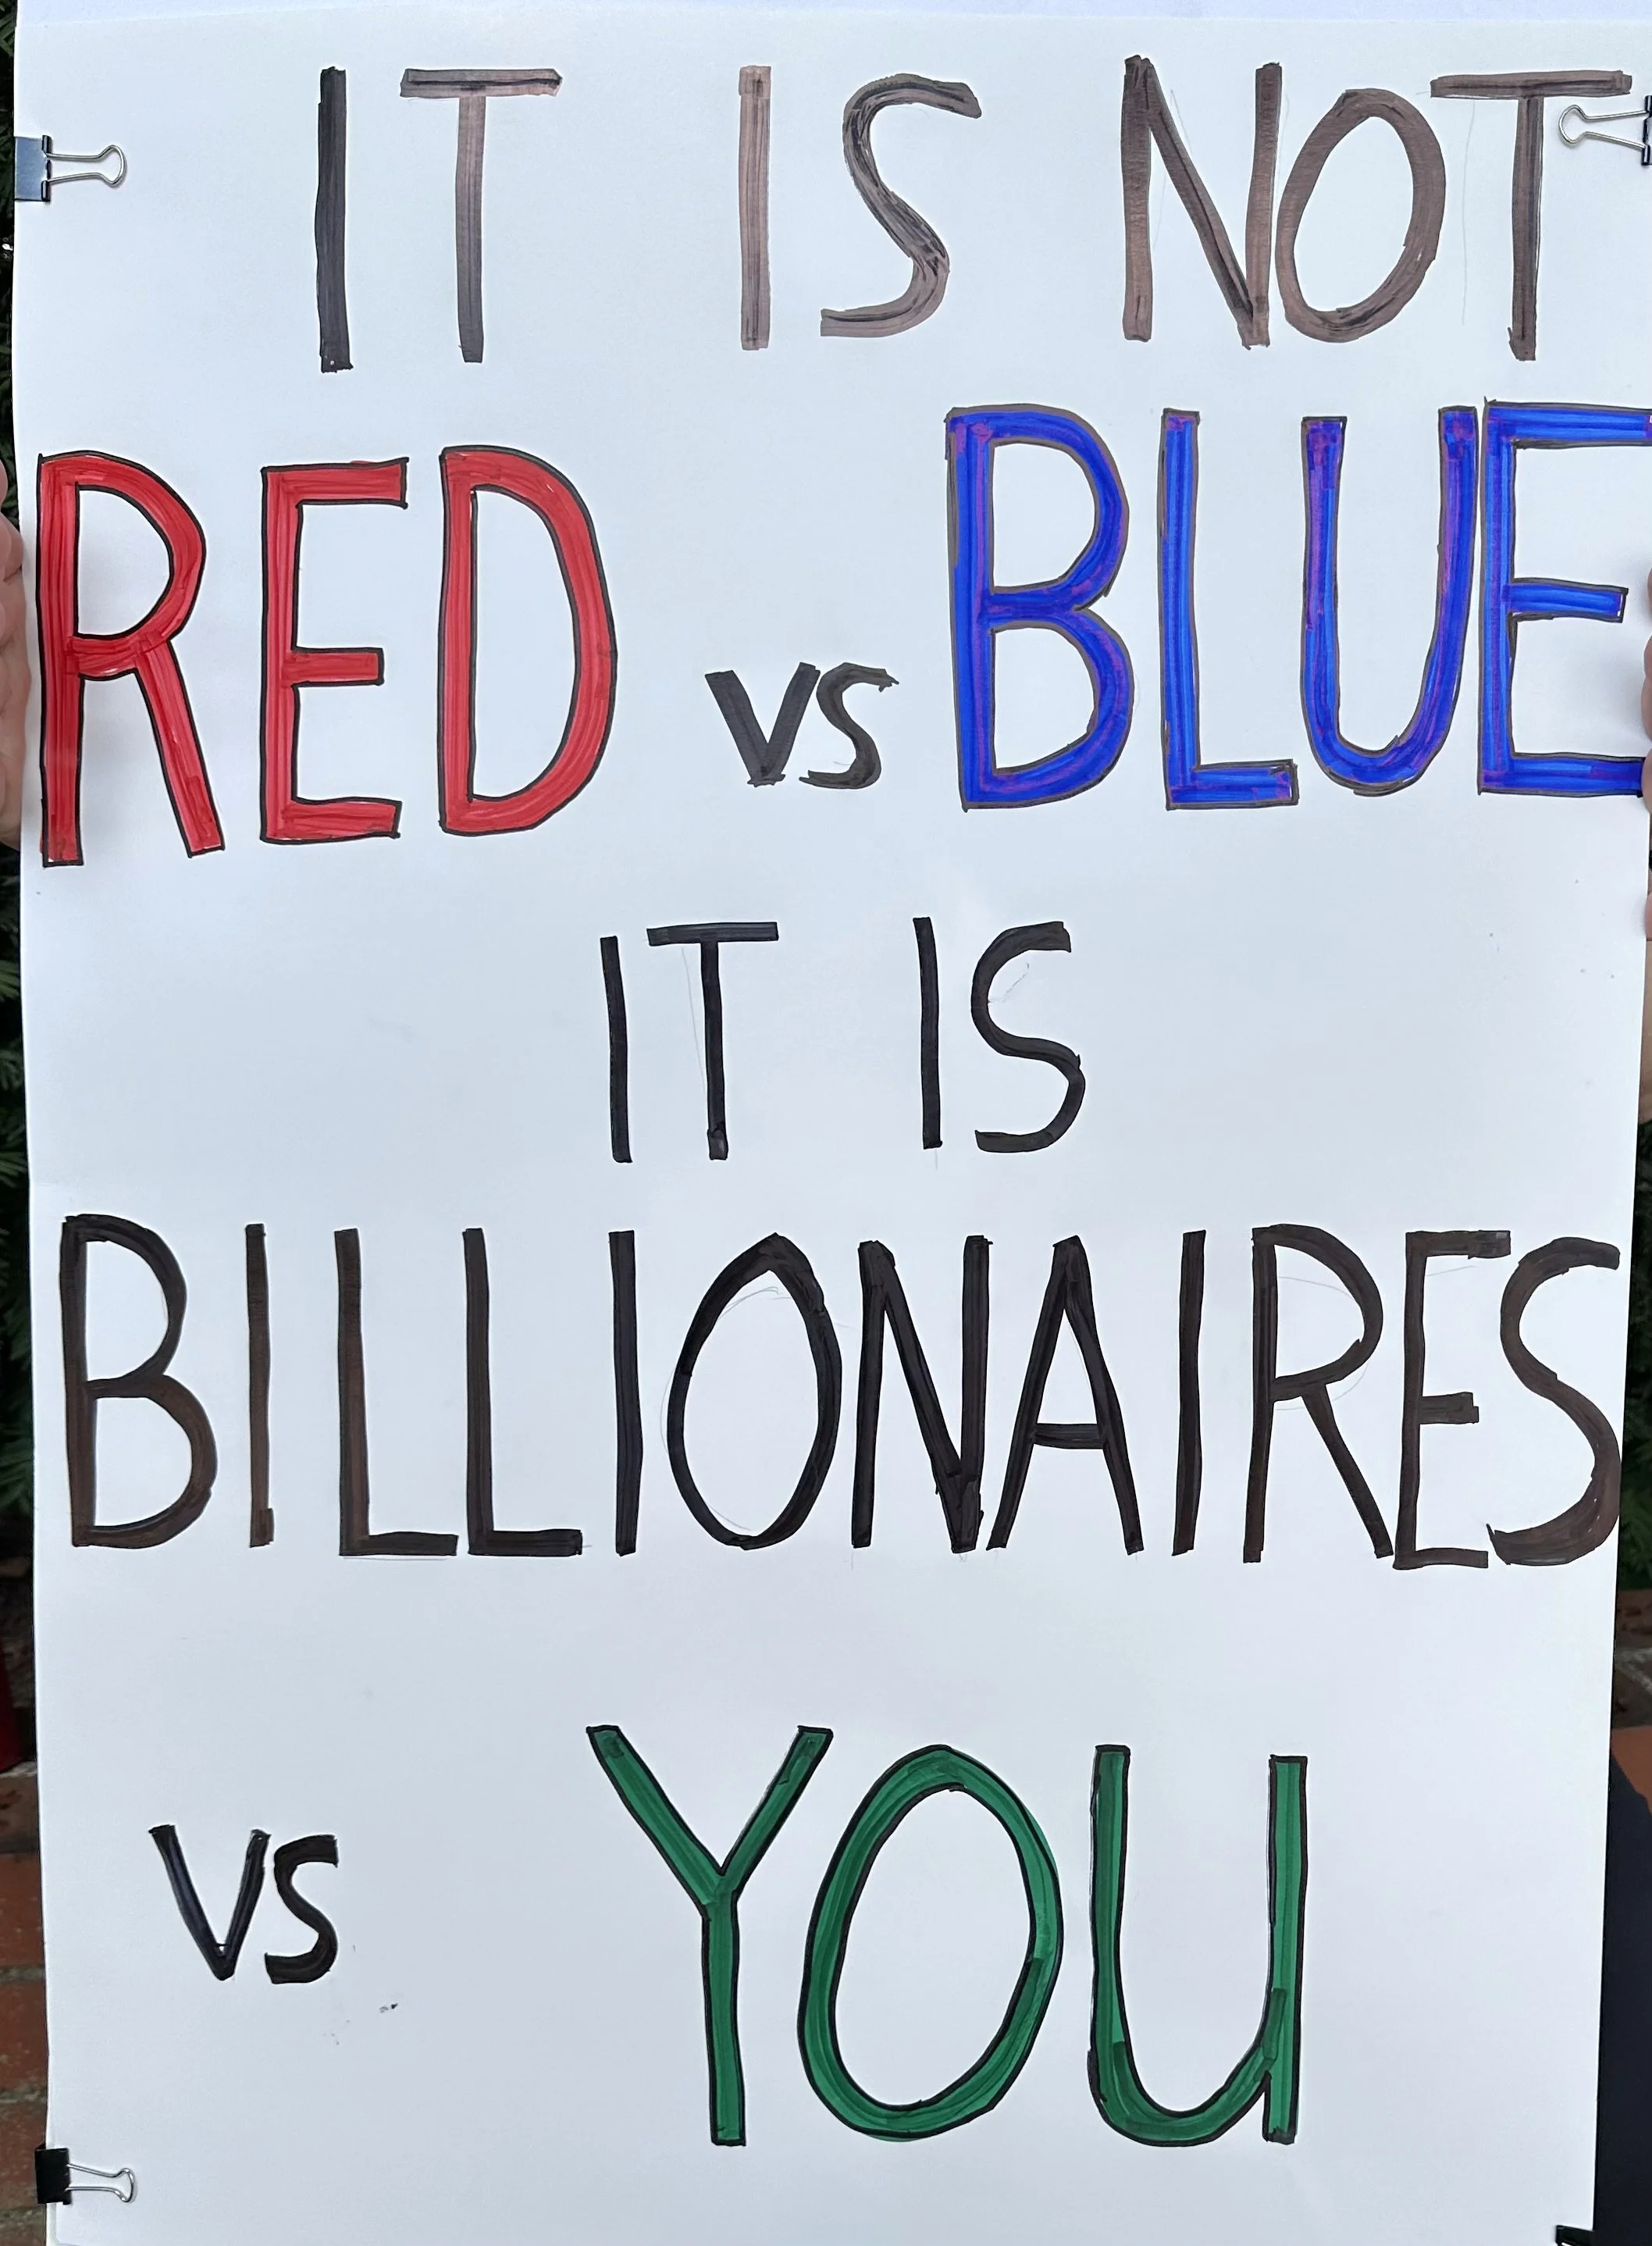 IT IS NOT
RED VS BLUE
IT IS
BILLIONAIRES
VS YOU